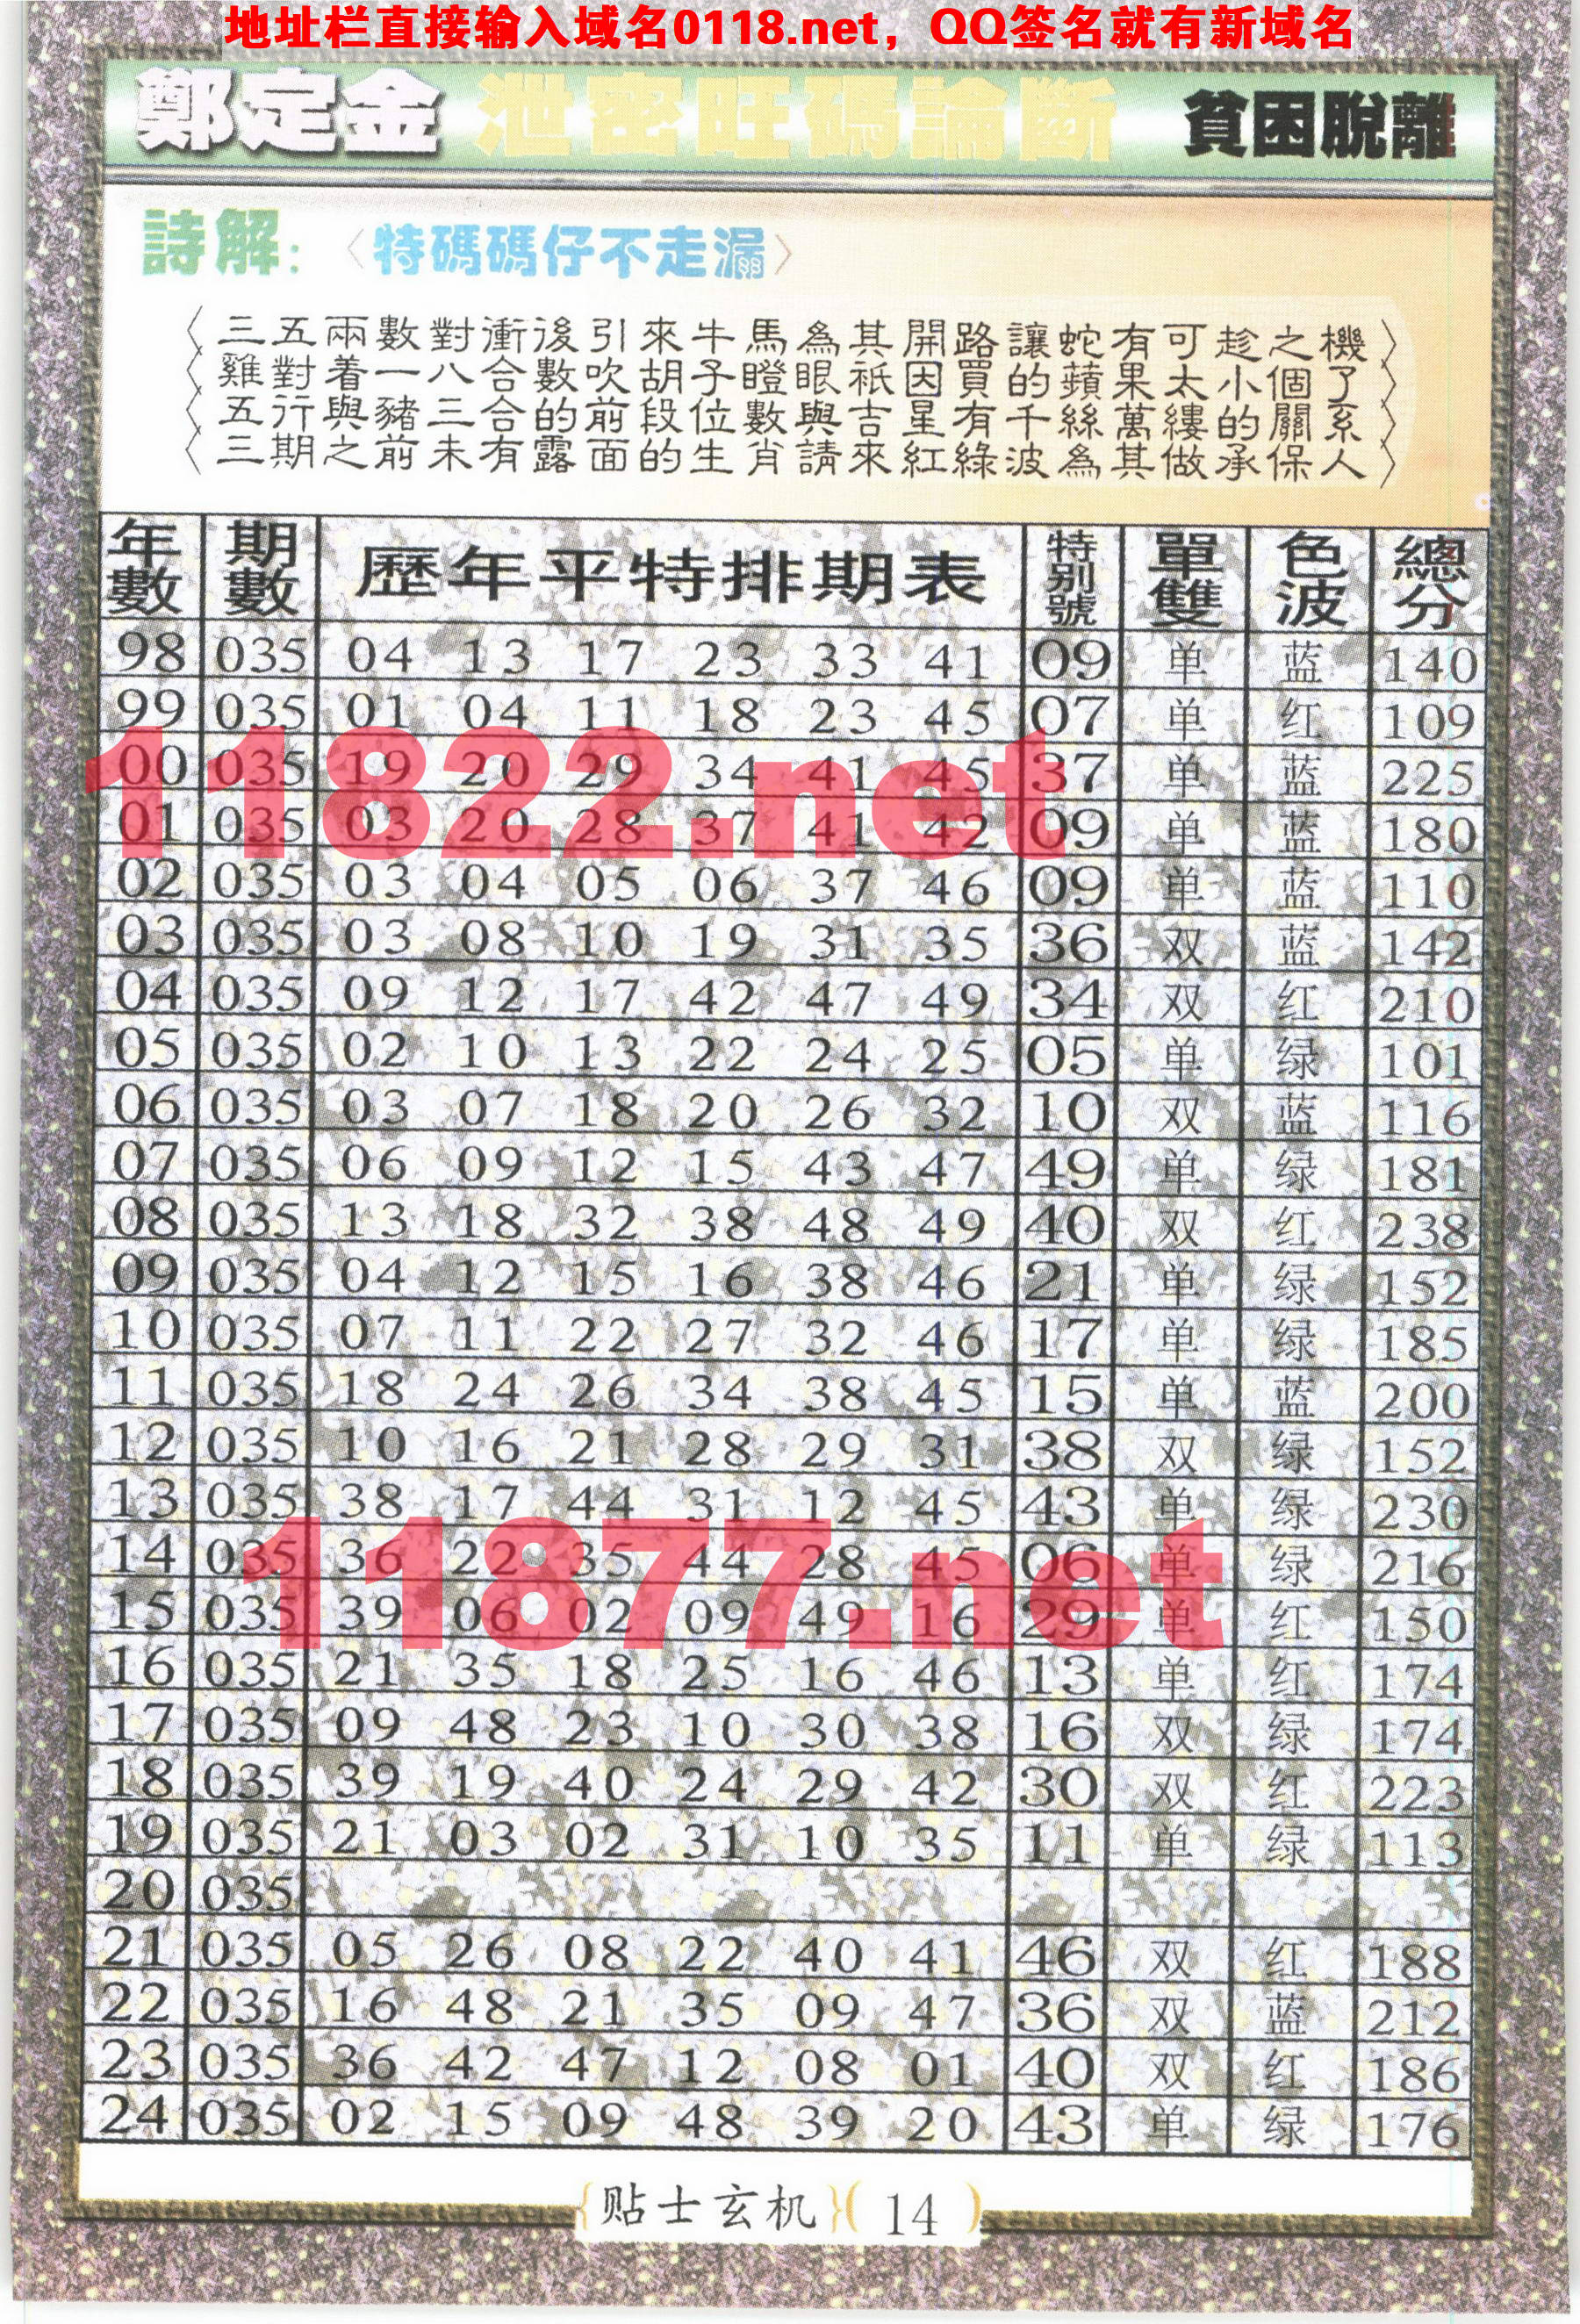 地址栏直接输入域名0118.net，QQ签名就有新域名
鄭定金 泄密旺碼論斷 貧困脫離
詩解：〈特碼碼仔不走漏〉
〈三五兩數對衝後引來牛馬為其開路讓蛇有可趁之機〉
〈雞對着一八合數吹胡子瞪眼祇因買的蘋果太小個了〉
〈五行與豬三合的前段位數與吉星有千絲萬縷的關系〉
〈三期之前未有露面的生肖請來紅綠波為其做承保人〉
年數 期數 歷年平特排期表 特別號 單雙 色波 總分
98 035 04 13 17 23 33 41 09 单 蓝 140
99 035 01 04 11 18 23 45 07 单 红 109
00 035 19 20 29 34 41 45 37 单 蓝 225
11822.net
01 035 03 20 28 37 41 42 09 单 蓝 180
02 035 03 04 05 06 37 46 09 单 蓝 110
03 035 03 08 10 19 31 35 36 双 蓝 142
04 035 09 12 17 42 47 49 34 双 红 210
05 035 02 10 13 22 24 25 05 单 绿 101
06 035 03 07 18 20 26 32 10 双 蓝 116
07 035 06 09 12 15 43 47 49 单 绿 181
08 035 13 18 32 38 48 49 40 双 红 238
09 035 04 12 15 16 38 46 21 单 绿 152
10 035 07 11 22 27 32 46 17 单 绿 185
11 035 18 24 26 34 38 45 15 单 蓝 200
12 035 10 16 21 28 29 31 38 双 绿 152
13 035 38 17 44 31 12 45 43 单 绿 230
14 035 36 22 35 44 28 45 06 单 绿 216
11877.net
15 035 39 06 02 09 49 16 29 单 红 150
16 035 21 35 18 25 16 46 13 单 红 174
17 035 09 48 23 10 30 38 16 双 绿 174
18 035 39 19 40 24 29 42 30 双 红 223
19 035 21 03 02 31 10 35 11 单 绿 113
20 035
21 035 05 26 08 22 40 41 46 双 红 188
22 035 16 48 21 35 09 47 36 双 蓝 212
23 035 36 42 47 12 08 01 40 双 红 186
24 035 02 15 09 48 39 20 43 单 绿 176
{贴士玄机}(14)